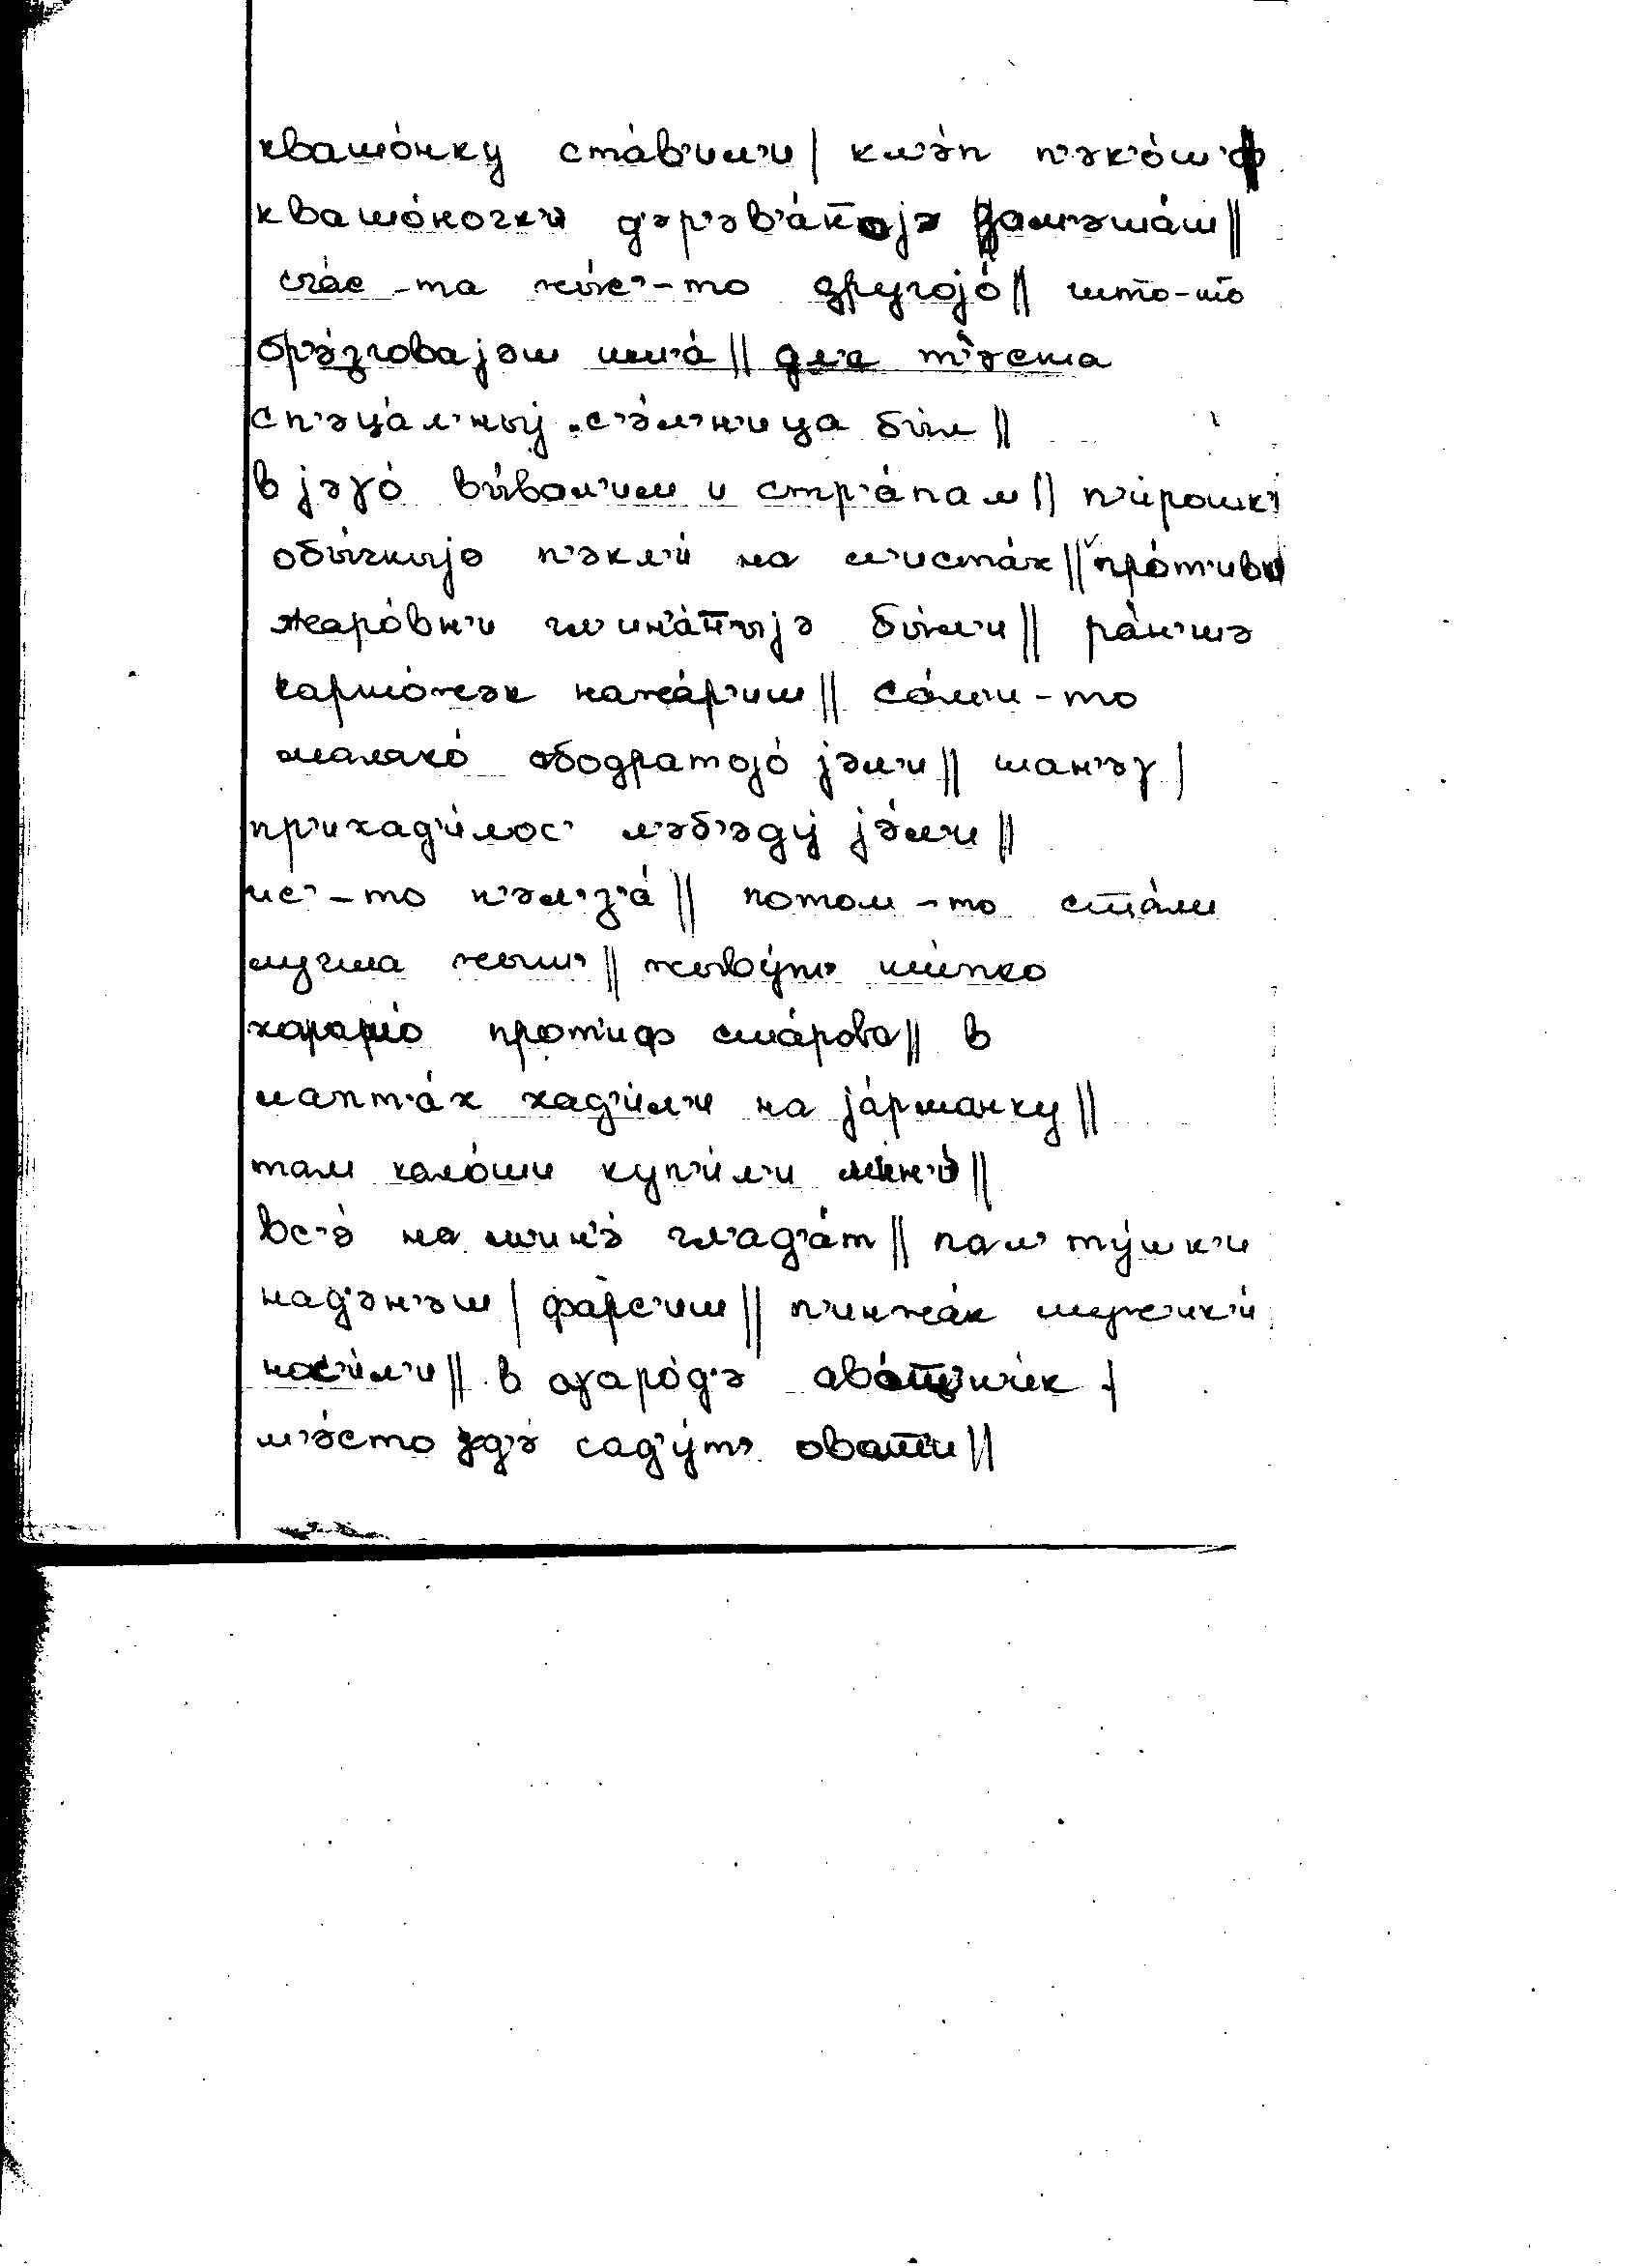 квашо́нку ста́в'ил'и | кл'э́п п'эк'о́ш ф
квашо́ночки д'эр'эв'а́н̅ојэ дом'эша́ш ||
счас-та жы́с'-то другојо́ || што-то
бр'э́зговајэш шт'а́ || дл'а т'э́ста
сп'эца́л'ныј с'э́л'н'ица был ||
в јэγо́ вы́вал'им и стр'а́пам || п'ирошк'и
обы́чныјэ п'экл'и́ на л'иста́х || про́т'ивн
жаро́вн'и гл'ин'а́н̅ыјэ бы́л'и || ра́н'шэ
картошэк нажа́р'иш || со́л'и-то
малако́ ободратојо́ јэл'и || шан'эγ |
пр'ихад'и́лос' л'эб'эду́ јэ́л'и ||
ис'-то н'эл'з'а́ || потом-то ста́ли
лучша жыт' || жыву́т' шы́пко
харашо́ прот'иф ста́рова || в
лапт'а́х хад'и́л'и на ја́рманку ||
там кало́ши куп'и́л'и мин'э́ ||
вс'э́ на мин'э́ гл'ад'а́т || пал'ту́шк'и
над'э́н'эш | фарс'и́ш || п'инжа́к мужук'и́
нас'и́л'и || в аγаро́д'э ав'о́щнич'ек |
м'э́сто гд'э сад'у́т' овощи ||